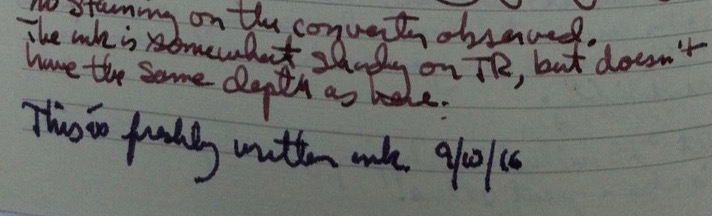 no staining on the converter observed.
The ink is somewhat shady on TR, but doesn't
have the same depth as here.
This is freshly written ink. 9/10/16